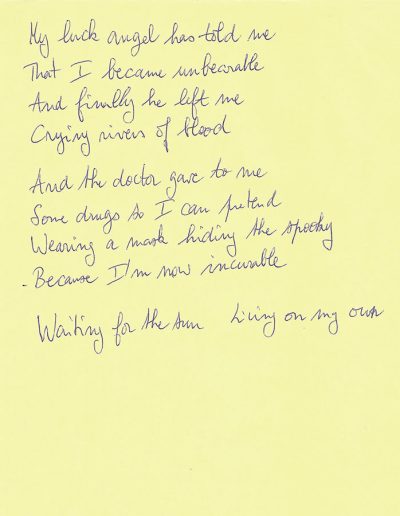 My luck angel has told me
That I became unbearable
And finally he left me
Crying rivers of blood
And the doctor gave to me
Some drugs so I can pretend
Wearing a mask hiding the spooky
- Because I'm now incurable
Waiting for the sun Living on my own